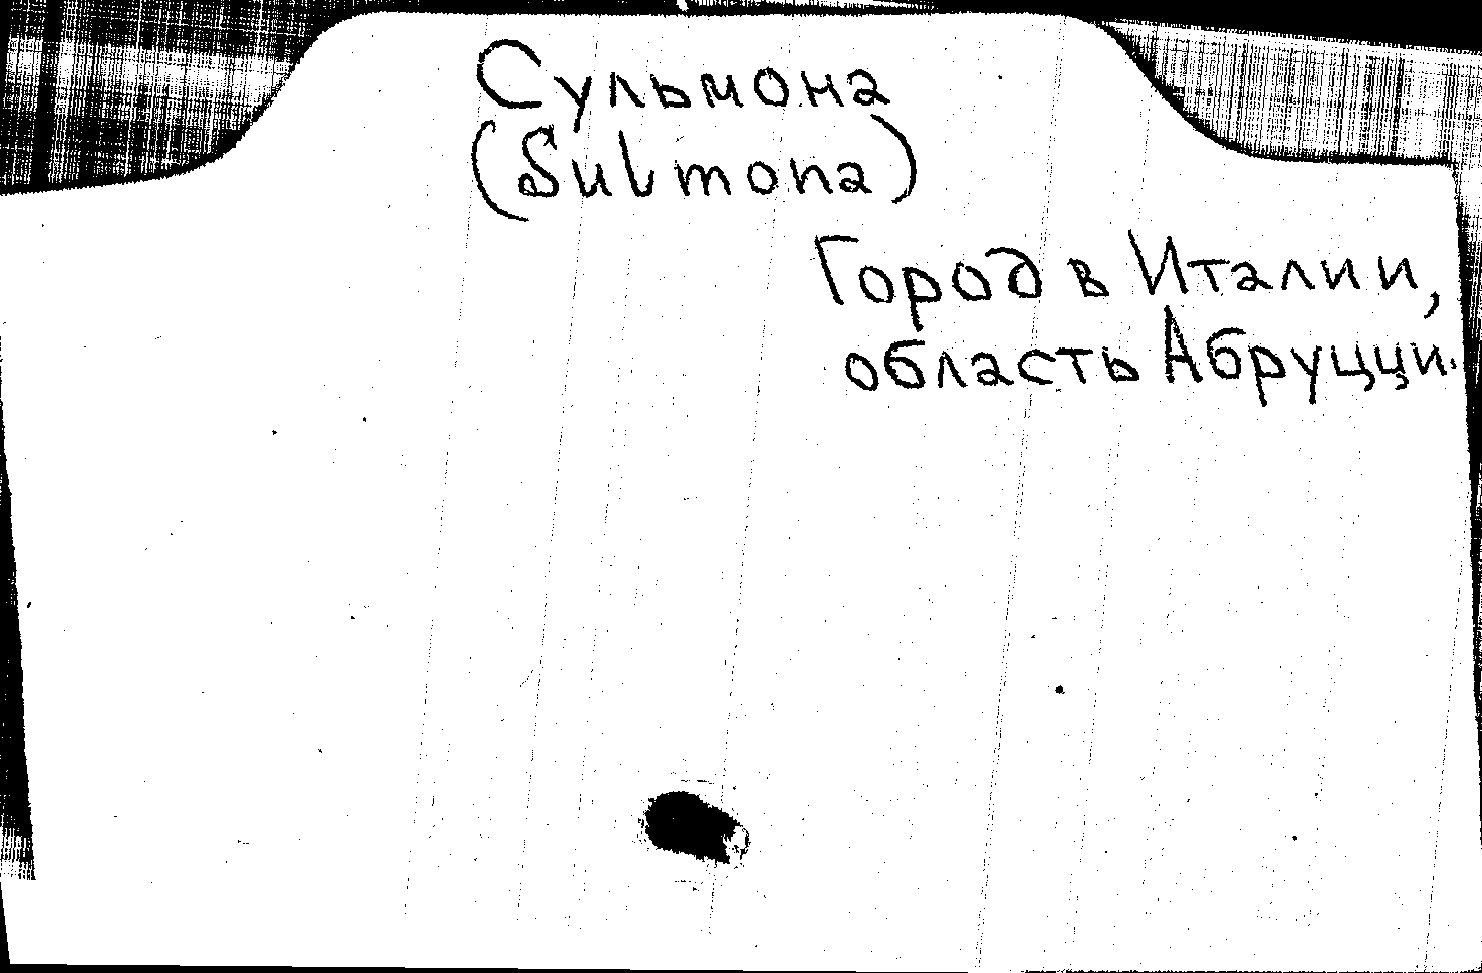 Сульмона
(Sulmona)
Город в Италии,
область Абруцци.